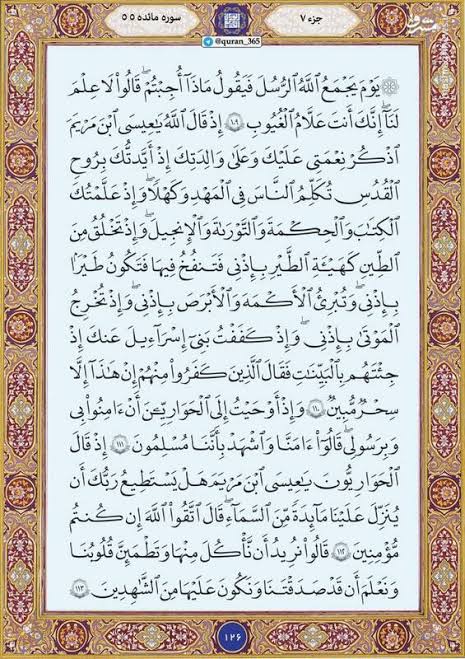 جزء ۷
سوره مائده ۵
@quran_365
يَوْمَ يَجْمَعُ اللَّهُ الرُّسُلَ فَيَقُولُ مَاذَا أُجِبْتُمْ ۖ قَالُوا۟ لَا عِلْمَ
لَنَا ۖ إِنَّكَ أَنتَ عَلَّامُ الْغُيُوبِ ۝١٠٩ إِذْ قَالَ اللَّهُ يَاعِيسَى ابْنَ مَرْيَمَ
اذْكُرْ نِعْمَتِي عَلَيْكَ وَعَلَىٰ وَالِدَتِكَ إِذْ أَيَّدتُّكَ بِرُوحِ
الْقُدُسِ تُكَلِّمُ النَّاسَ فِي الْمَهْدِ وَكَهْلًا ۖ وَإِذْ عَلَّمْتُكَ
الْكِتَابَ وَالْحِكْمَةَ وَالتَّوْرَاةَ وَالْإِنجِيلَ ۖ وَإِذْ تَخْلُقُ مِنَ
الطِّينِ كَهَيْـَٔةِ الطَّيْرِ بِإِذْنِي فَتَنفُخُ فِيهَا فَتَكُونُ طَيْرًا
بِإِذْنِي ۖ وَتُبْرِئُ الْأَكْمَهَ وَالْأَبْرَصَ بِإِذْنِي ۖ وَإِذْ تُخْرِجُ
الْمَوْتَىٰ بِإِذْنِي ۖ وَإِذْ كَفَفْتُ بَنِي إِسْرَاءِيلَ عَنكَ إِذْ
جِئْتَهُم بِالْبَيِّنَاتِ فَقَالَ الَّذِينَ كَفَرُوا۟ مِنْهُمْ إِنْ هَٰذَا إِلَّا
سِحْرٌ مُّبِينٌ ۝١١٠ وَإِذْ أَوْحَيْتُ إِلَى الْحَوَارِيِّۦنَ أَنْ ءَامِنُوا۟ بِي
وَبِرَسُولِي قَالُوا۟ ءَامَنَّا وَاشْهَدْ بِأَنَّنَا مُسْلِمُونَ ۝١١١ إِذْ قَالَ
الْحَوَارِيُّونَ يَاعِيسَى ابْنَ مَرْيَمَ هَلْ يَسْتَطِيعُ رَبُّكَ أَن
يُنَزِّلَ عَلَيْنَا مَآئِدَةً مِّنَ السَّمَآءِ ۖ قَالَ اتَّقُوا۟ اللَّهَ إِن كُنتُم
مُّؤْمِنِينَ ۝١١٢ قَالُوا۟ نُرِيدُ أَن نَّأْكُلَ مِنْهَا وَتَطْمَئِنَّ قُلُوبُنَا
وَنَعْلَمَ أَن قَدْ صَدَقْتَنَا وَنَكُونَ عَلَيْهَا مِنَ الشَّاهِدِينَ ۝١١٣
۱۲۶